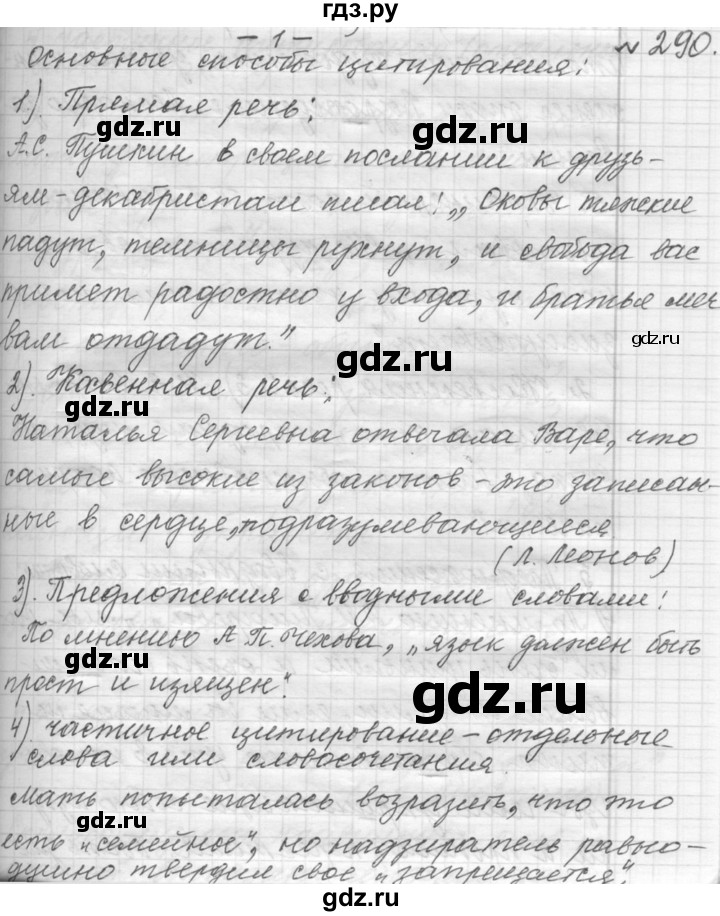 гдз.ру
- 1 -
№ 290.
Основные способы цитирования:
1). Прямая речь:
gdz.ru
gdz.ru
А.С. Пушкин в своем послании к друзь-
ям-декабристам писал: „Оковы тяжкие
падут, темницы рухнут, и свобода вас
примет радостно у входа, и братья меч
вам отдадут."
gdz.ru
gdz.ru
2). Косвенная речь:
gdz.ru
Наталья Сергеевна отвечала Варе, что
самые высокие из законов - это записан-
ные в сердце, подразумевающиеся
(Л. Леонов)
3). Предложения с вводными словами:
По мнению А.П. Чехова, „язык должен быть
прост и изящен".
gdz.ru
4). частичное цитирование - отдельные
слова или словосочетания.
Мать попыталась возразить, что это
gdz.ru
есть „семейное", но надзиратель равно-
gdz.ru
душно твердил свое „запрещается".
gdz.ru